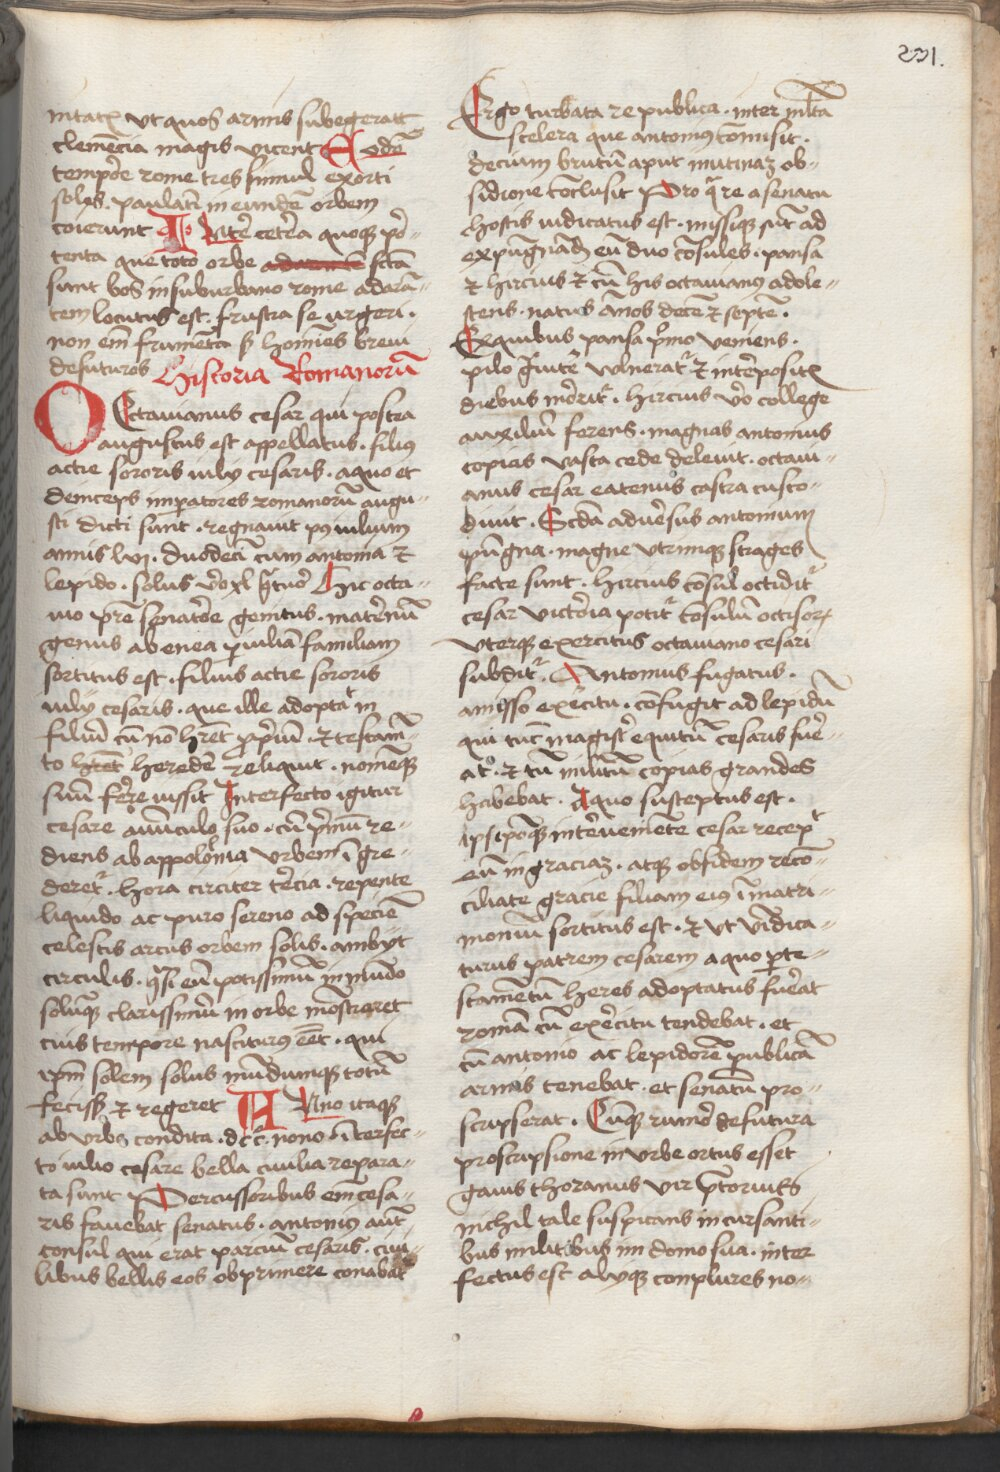 231.
nitatꝭ ut quos armis subegerat
clemēcia magis vicerit Eodē
tempore rome tres simul exorti
soles . paulatī in eundē orbem
coierunt Inter cetera quoqꝫ por
tenta que toto orbe facta
sunt bos in suburbano rome ad arā-
tem locutus est . frustra se urgeri .
non em̄ frumēta sꝫ homines brevi
defuturos Historia Romanorū
Octavianus cesar qui postea
augustus est appellatus . filiꝰ
actie sororis iulij cesaris . a quo et
deinceps impatores romanorū augu-
sti dicti sunt . regnavit pꝰ iulium
annis lvj . duodeci cum antonio ⁊
lepido . solus vo xl qtuor Hic octa-
vio pre senatore genitus . maternū
genus ab enea p iuliā familiam
sortitus est . filius actie sororis
iulij cesaris . que ille adoptat in
filiū cū nō hret ppriū . ⁊ testam-
to heredē reliquit . nomenqꝫ
suū ferre iussit Interfecto igitur
cesare avūculo suo . cū primū re-
diens ab appolonia urbem ī gre-
deret . hora circiter tercia . repente
liquido ac puro sereno ad speciē
celestis arcus orbem solis . ambijt
circulis . qsi eū potissimū in mūdo
solūqꝫ clarissimū in orbe mōstraret
cuius tempore nasciturꝰ eēt . qui
ipm̄ solem solus mūdumqꝫ totū
fecissꝫ ⁊ regeret Anno itaqꝫ
ab urbe condita . dcc . nono interfec-
to iulio cesare bella civilia repara-
ta sunt Percussoribus em̄ cesa-
ris favebat senatus . antoniꝰ aut
consul qui erat parciū cesaris . civi-
libus bellis eos obprimere conabat
Ergo turbata re publica . inter mlta
scelera que antoniꝰ cōmisit .
decium brutū aput mutinaꝫ ob-
sidione cōclusit Pro q re a senatu
hostis iudicatus est . missiqꝫ sūt ad
expugnandū eū duo cōsules . pansa
⁊ hircius ⁊ cū his octavianꝰ adole-
scens . natus ānos decē ⁊ septē .
Ex quibus pansa pmo veniens .
pilo gviter vulnerat ⁊ interpositꝭ
diebus morit . hircius vo college
auxiliū ferens . magnas antonius
copias vasta cede delevit . octavi-
anus cesar eatenus castra custo-
divit . Scda adversus antonium
pugna . magne utrimqꝫ strages
facte sunt . hircius cōsul occidit
cesar victoria potit cōsulū occisoꝝ
uterqꝫ exercitus octaviano cesari
subdit . Antonius fugatus .
amisso exercitu . cōfugit ad lepidū
qui tūc magister equitū cesaris fue-
at . ⁊ tū militū copias grandes
habebat . A quo susceptus est .
ipseqꝫ interveniente cesar recept
eū in graciaꝫ . atqꝫ obsidem recō-
ciliate gracie filiam eiꝰ ī matri-
moniū sortitus est . ⁊ ut vīdica-
turus patrem cesarem a quo p te-
stamētū heres adoptatus fuerat
romā cū exercitu tendebat . et
cū antonio ac lepido rē publicā
armis tenebat . et senatū pro-
scripserat . Cūqꝫ rumor de futura
proscripsione in urbe ortus esset
gaius thoranius vir ptorius
nichil tale suspicans incursanti-
bus militibus in domo sua . inter
fectus est alijqꝫ complures no-